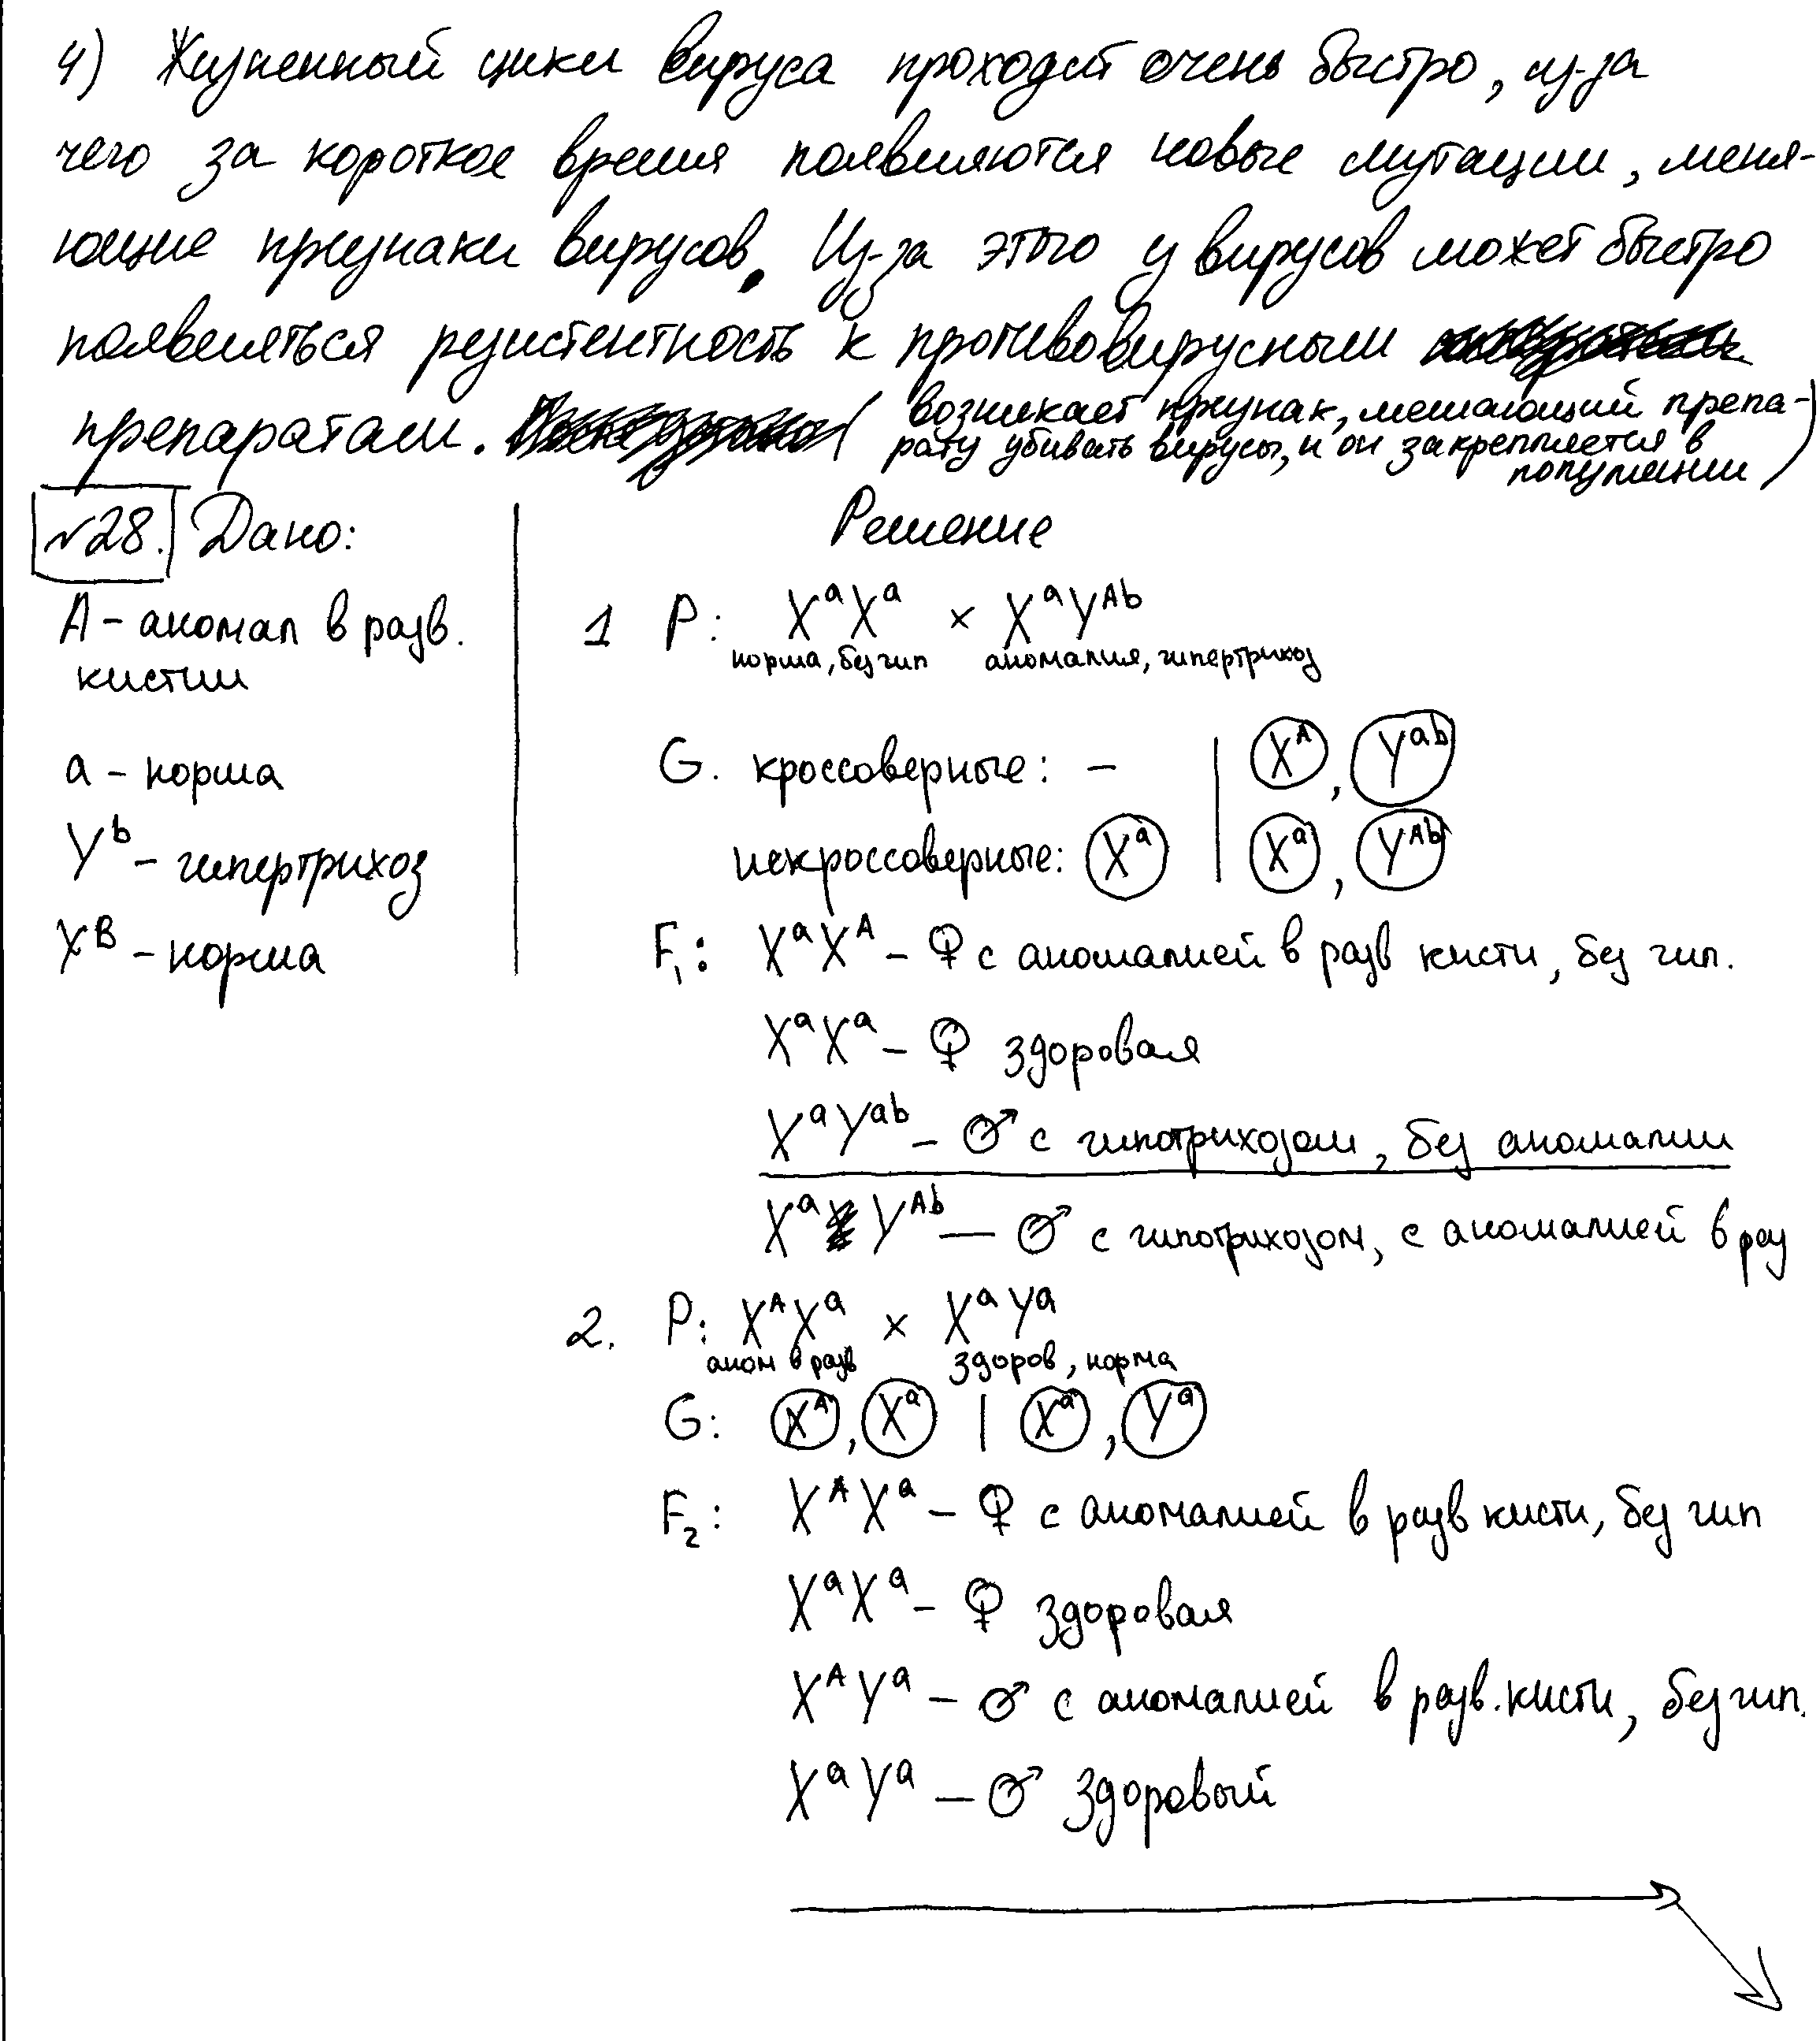 4) Жизненный цикл вируса проходит очень быстро, из-за
чего за короткое время появляются новые мутации, меня-
ющие признаки вирусов. Из-за этого у вирусов может быстро
появляться резистентность к противовирусным
препаратам. (возникает признак, мешающий препа-
рату убивать вирусы, и он закрепляется в
популяции)
№28. Дано:
Решение
А - аномал в разв.
кисти
а - норма
Y^b - гипертрихоз
X^B - норма
1 P: X^aX^a × X^aY^Ab
норма, без гип аномалия, гипертрихоз
G. кроссоверные: - | X^A, Y^ab
некроссоверные: X^a | X^a, Y^Ab
F₁: X^aX^A - ♀ с аномалией в разв кисти, без гип.
X^aX^a - ♀ здоровая
X^aY^ab - ♂ с гипотрихозом, без аномалии
X^aY^Ab — ♂ с гипотрихозом, с аномалией в раз
2. P: X^AX^a × X^aY^a
аном в разв здоров, норма
G: X^A, X^a | X^a, Y^a
F₂: X^AX^a - ♀ с аномалией в разв кисти, без гип
X^aX^a - ♀ здоровая
X^AY^a - ♂ с аномалией в разв. кисти, без гип.
X^aY^a - ♂ здоровый